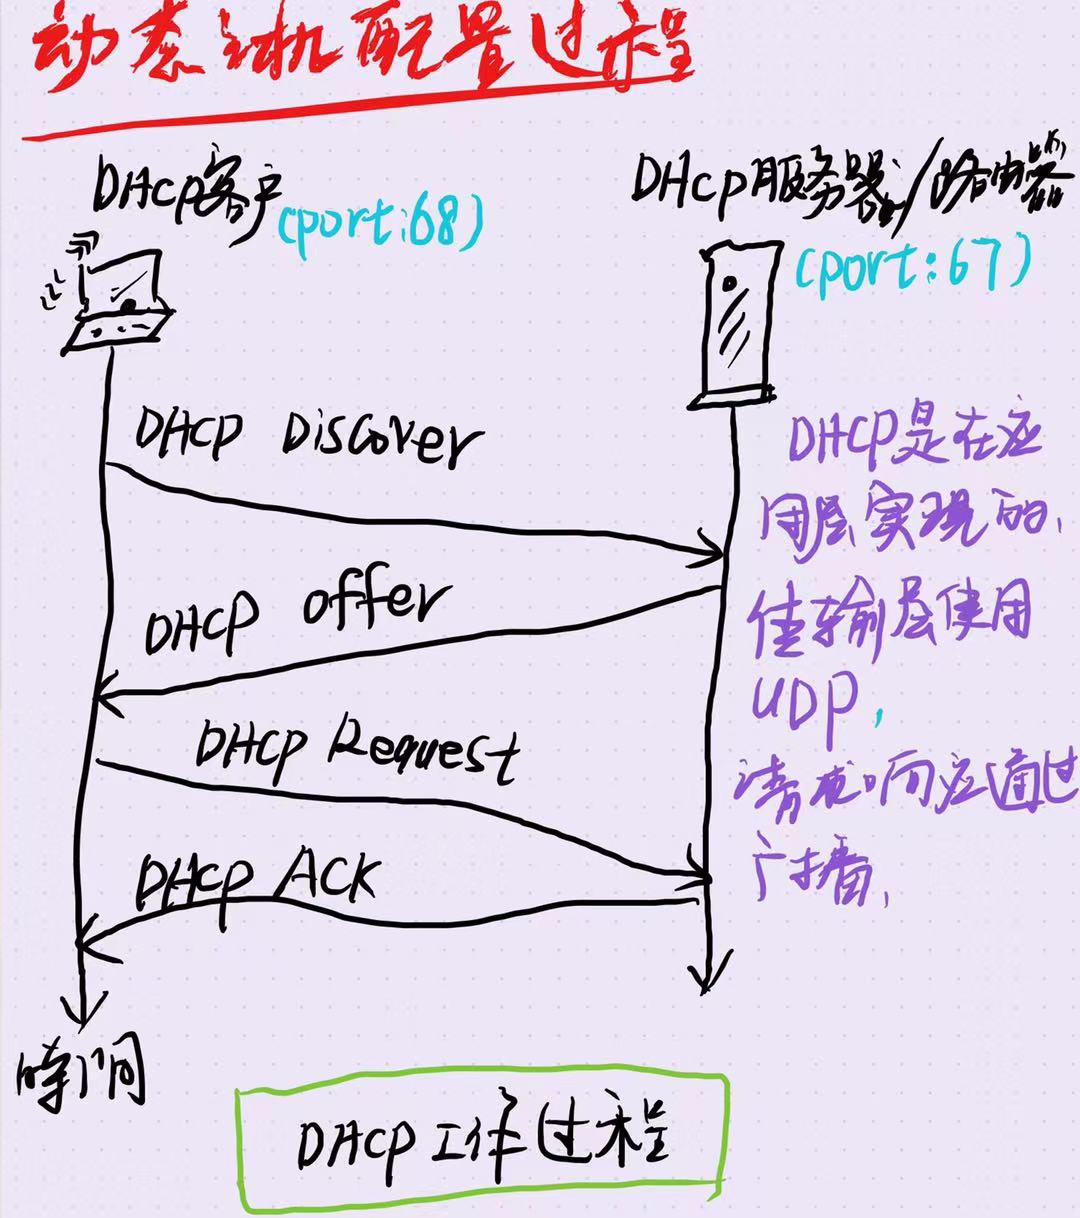 动态主机配置过程
DHCP客户
(port:68)
DHCP服务器/路由器
(port:67)
DHCP Discover
DHCP offer
DHCP Request
DHCP ACK
時间
DHCP是在应
用层实现的,
传输层使用
UDP,
请求响应通过
广播,
DHCP工作过程